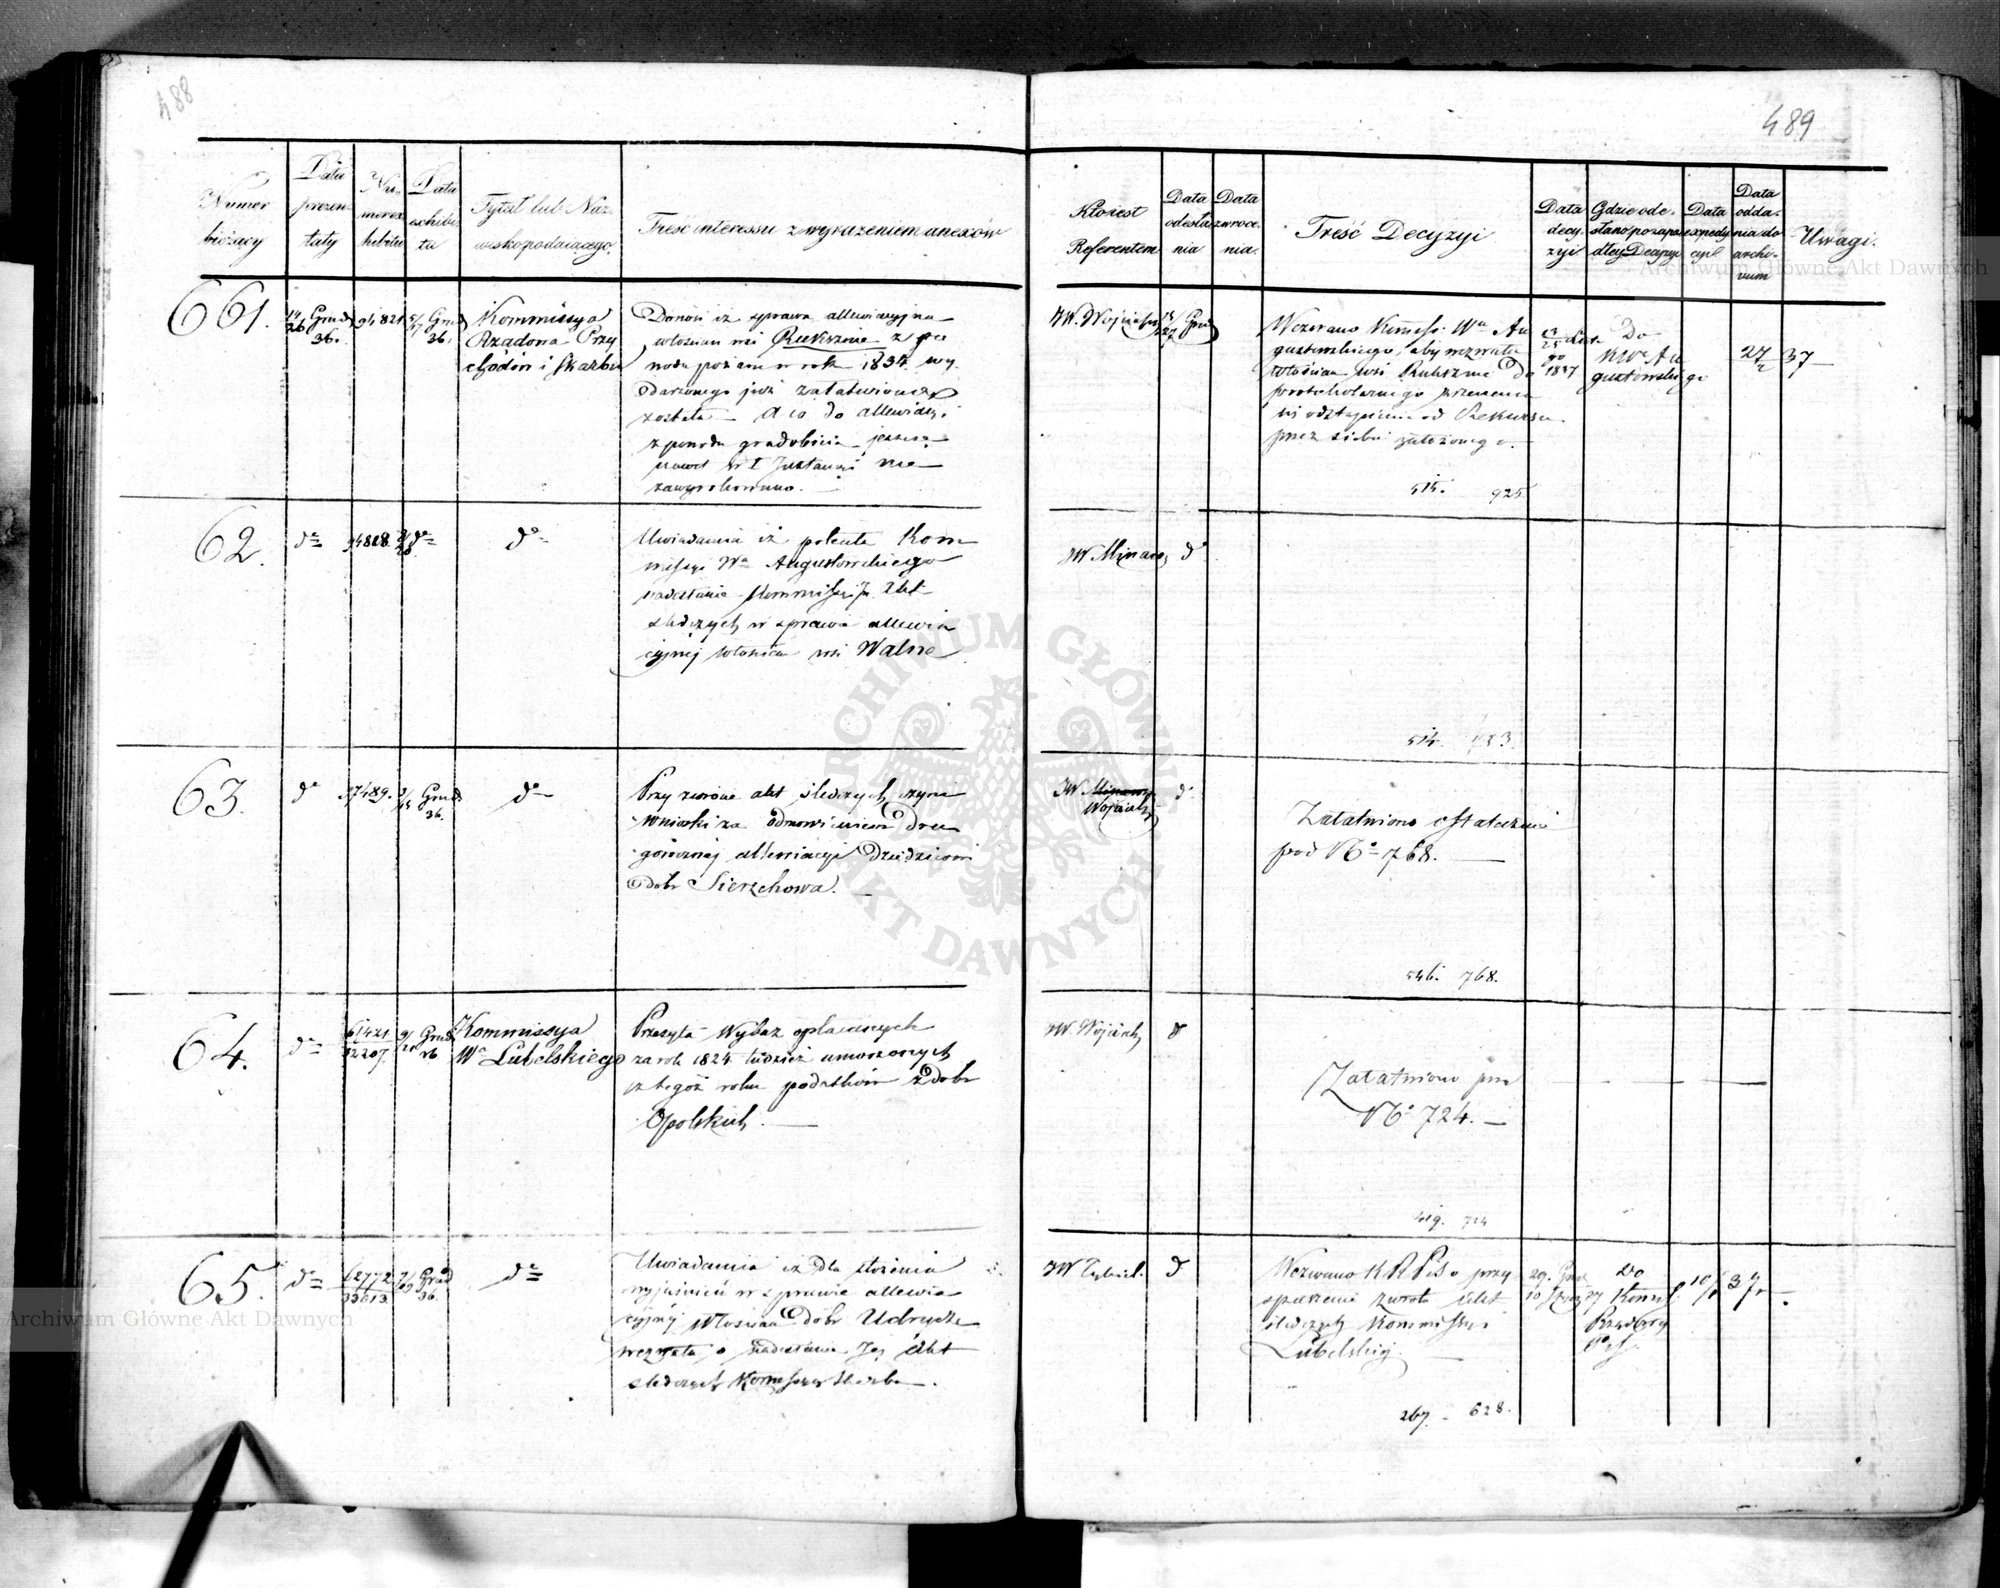 488
Numer bieżący
Data prezentaty
Numer exhibitu
Data exhibitu
Tytuł lub Nazwisko podającego
Treść interessu z wyrażeniem anexów
661.
14/26 Grud 36.
94821
5/17 Grud 36.
Kommissya
Rządowa Przy
chodów i Skarbu
Donosi iż sprawa allewiacyjna
włościan wsi Ruksznie z po
wodu pożaru w roku 1834 wy
darzonego już załatwioną
została – a co do allewiacyi
z powodu gradobicia jeszcze
nawet w I Instancyi nie
zawyrokowano.
62.
do
94828
do
do
Uwiadamia iż poleciła Kom
missyi Wa Augustowskiego
nadesłanie Kommissyi Akt
śledczych w sprawie allewia
cyjnej włościan wsi Walne
63.
do
97489.
3/15 Grud 36.
do
Przy zwrocie akt śledczych czyni
wnioski za odmówieniem dru
goroczney allewiacyi Dziedzicowi
dobr Sierzchowa.
64.
do
61421
32207.
9/21 Grud 36
Kommissya
Wa Lubelskiego
Przesyła Wykaz opłaconych
za rok 1824 tudzież umorzonych
z tegoż roku podatków z dobr
Opolskich.
65.
do
62772
33613.
7/19 Grud 36.
do
Uwiadamia iż dla złożenia
wyjaśnień w sprawie allewia
cyjnej Włościan dobr Udrycze
wezwała o nadesłanie Jej Akt
śledczych Kommissyą Skarbu.
489
Kto jest Referentem
Data odesłania
Data zwrócenia
Treść Decyzyi
Data decyzyi
Gdzie odesłano po zapadłey Decyzyi
Data expedycyi
Data oddania do archivum
Uwagi.
JW. Wojcicki
15/27 Grud
Wezwano Kommiss: Wa Au
gustowskiego, aby wezwała
włościan wsi Ruksznie do
protokolarnego zrzeczenia
się odstąpienia od Rekursu
przez siebie założonego.
515. 925.
13/25 1837
Do
KWa Au
gustowskiego
27/2 37
JW Minasow
do
514. 733.
JW Minasow
Wojcicki
do
Załatwiono ostatecznie
pod No 768.
546. 768.
JW. Wojcicki
do
Załatwiono pod
No 724.
419. 724
JW
do
Wezwano K R P i S o przy
spieszenie zwrotu Akt
śledczych Kommissyi
Lubelskiej.
267. 628.
29. Grud
10 37
Do
Kommis:
Rządowej
P i S.
10/ 37
ARCHIWUM GŁÓWNE AKT DAWNYCH
Archiwum Główne Akt Dawnych
Archiwum Główne Akt Dawnych